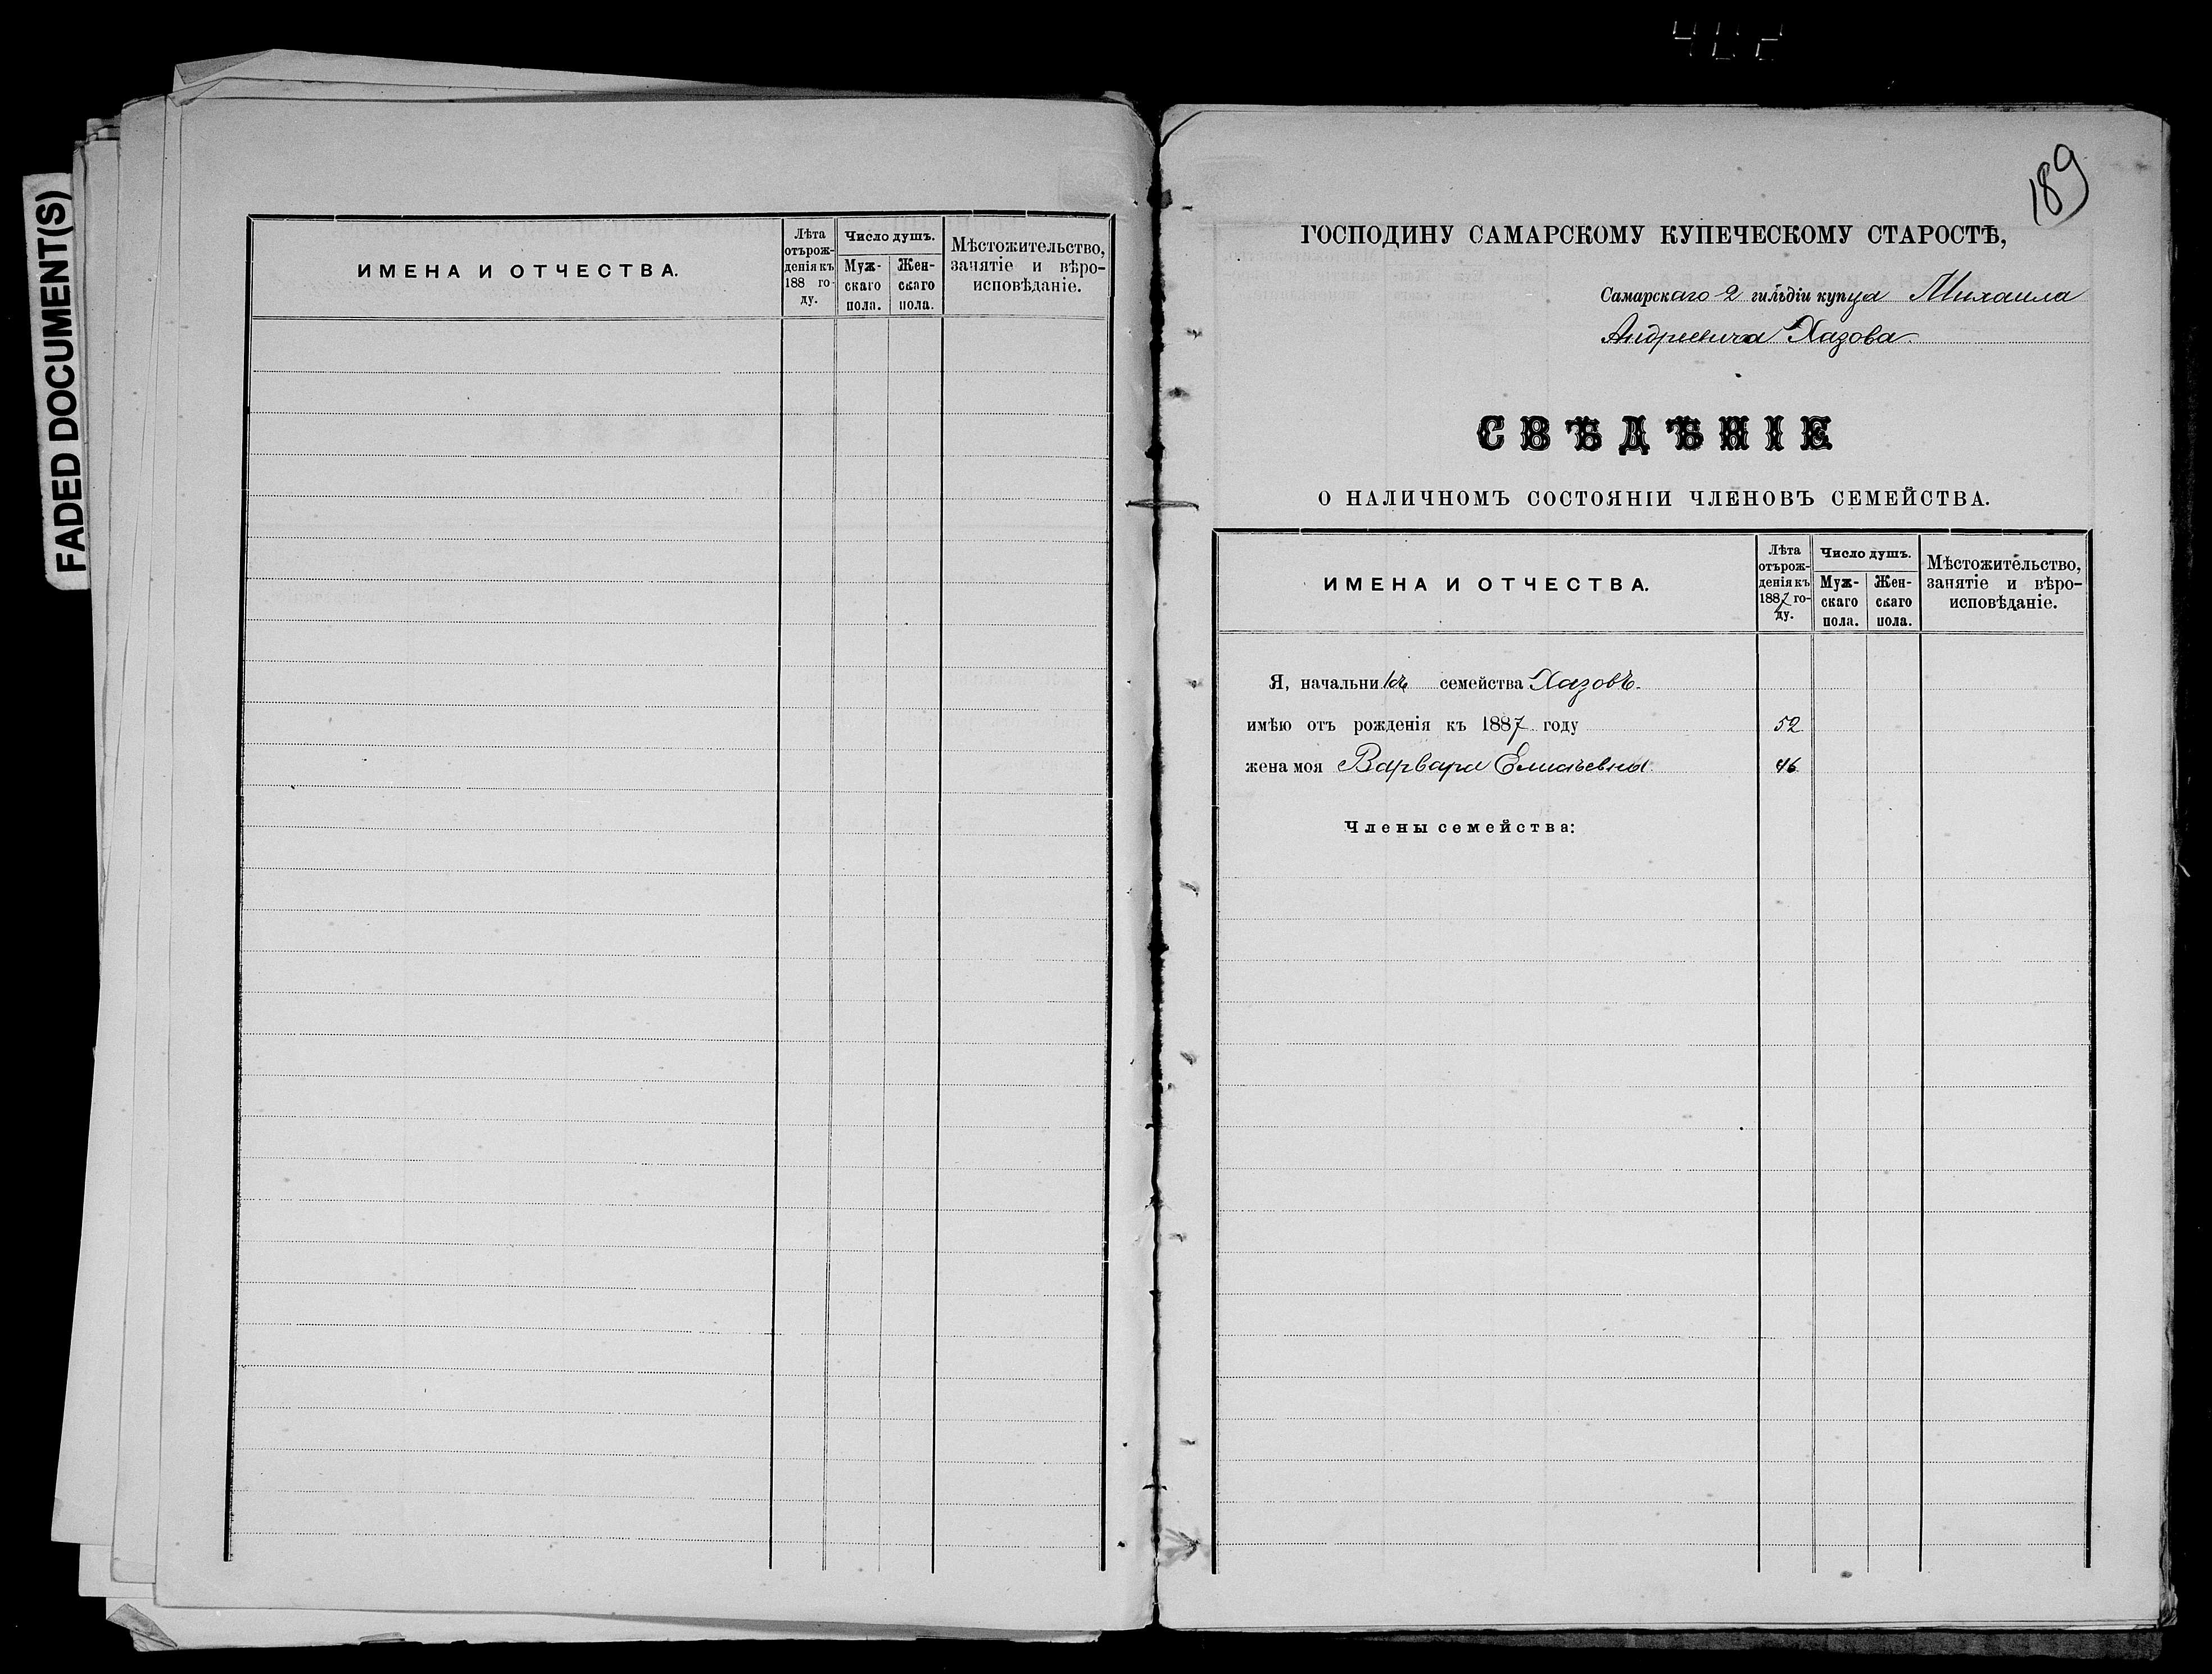 402
FADED DOCUMENT(S)
ИМЕНА И ОТЧЕСТВА.
Лѣта
отърож-
деніякъ
188 го-
ду.
Число душъ.
Муж-
скаго
пола.
Жен-
скаго
пола.
Мѣстожительство,
занятіе и вѣро-
исповѣданіе.
189
ГОСПОДИНУ САМАРСКОМУ КУПЕЧЕСКОМУ СТАРОСТѢ,
Самарскаго 2 гильдіи купца Михаила
Андреевича Хазова
СВѢДѢНІЕ
О НАЛИЧНОМЪ СОСТОЯНІИ ЧЛЕНОВЪ СЕМЕЙСТВА.
ИМЕНА И ОТЧЕСТВА.
Лѣта
отърож-
деніякъ
1887 го-
ду.
Число душъ.
Муж-
скаго
пола.
Жен-
скаго
пола.
Мѣстожительство,
занятіе и вѣро-
исповѣданіе.
Я, начальникъ семейства Хазовъ.
имѣю отъ рожденія къ 1887 году 52
жена моя Варвара 46
Члены семейства: